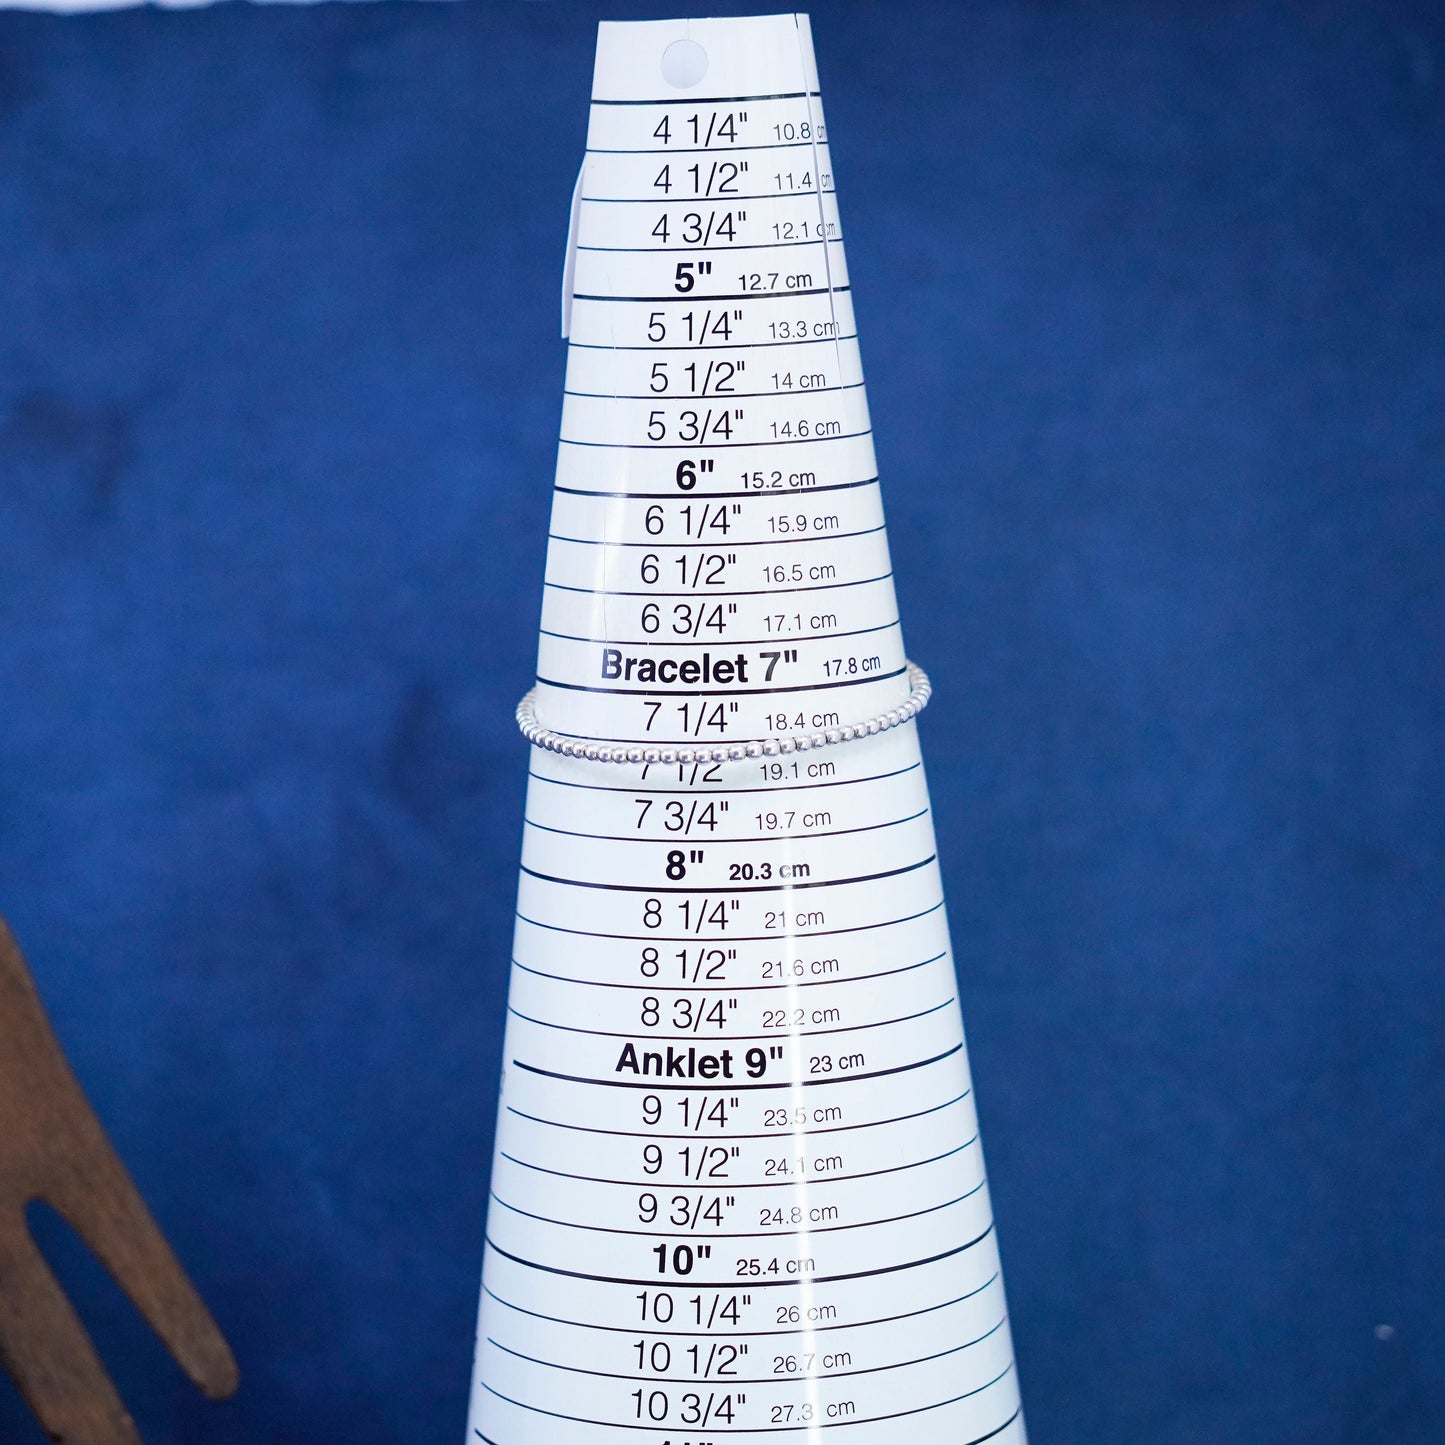 4 1/4" 10.8 cm
4 1/2" 11.4 cm
4 3/4" 12.1 cm
5" 12.7 cm
5 1/4" 13.3 cm
5 1/2" 14 cm
5 3/4" 14.6 cm
6" 15.2 cm
6 1/4" 15.9 cm
6 1/2" 16.5 cm
6 3/4" 17.1 cm
Bracelet 7" 17.8 cm
7 1/4" 18.4 cm
7 1/2 19.1 cm
7 3/4" 19.7 cm
8" 20.3 cm
8 1/4" 21 cm
8 1/2" 21.6 cm
8 3/4" 22.2 cm
Anklet 9" 23 cm
9 1/4" 23.5 cm
9 1/2" 24.1 cm
9 3/4" 24.8 cm
10" 25.4 cm
10 1/4" 26 cm
10 1/2" 26.7 cm
10 3/4" 27.3 cm